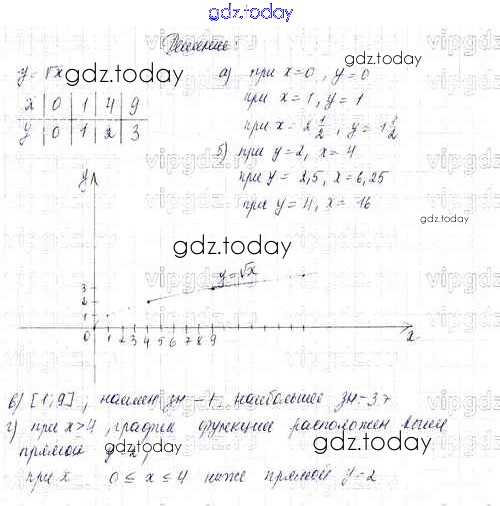 gdz.today
Решение:
y = √x
x | 0 | 1 | 4 | 9
y | 0 | 1 | 2 | 3
а) при x=0, y=0
при x=1, y=1
при x=2 1/2, y=1
б) при y=2, x=4
при y=2,5, x=6,25
при y=4, x=16
y
y=√x
3
2
1
0 1 2 3 4 5 6 7 8 9 x
в) [1;9], наимен зн -1, наибольшее зн-3
г) при x>4, график функции расположен выше
прямой
при x 0 ≤ x ≤ 4 ниже прямой y=2
gdz.today
gdz.today
gdz.today
gdz.today
gdz.today
gdz.today